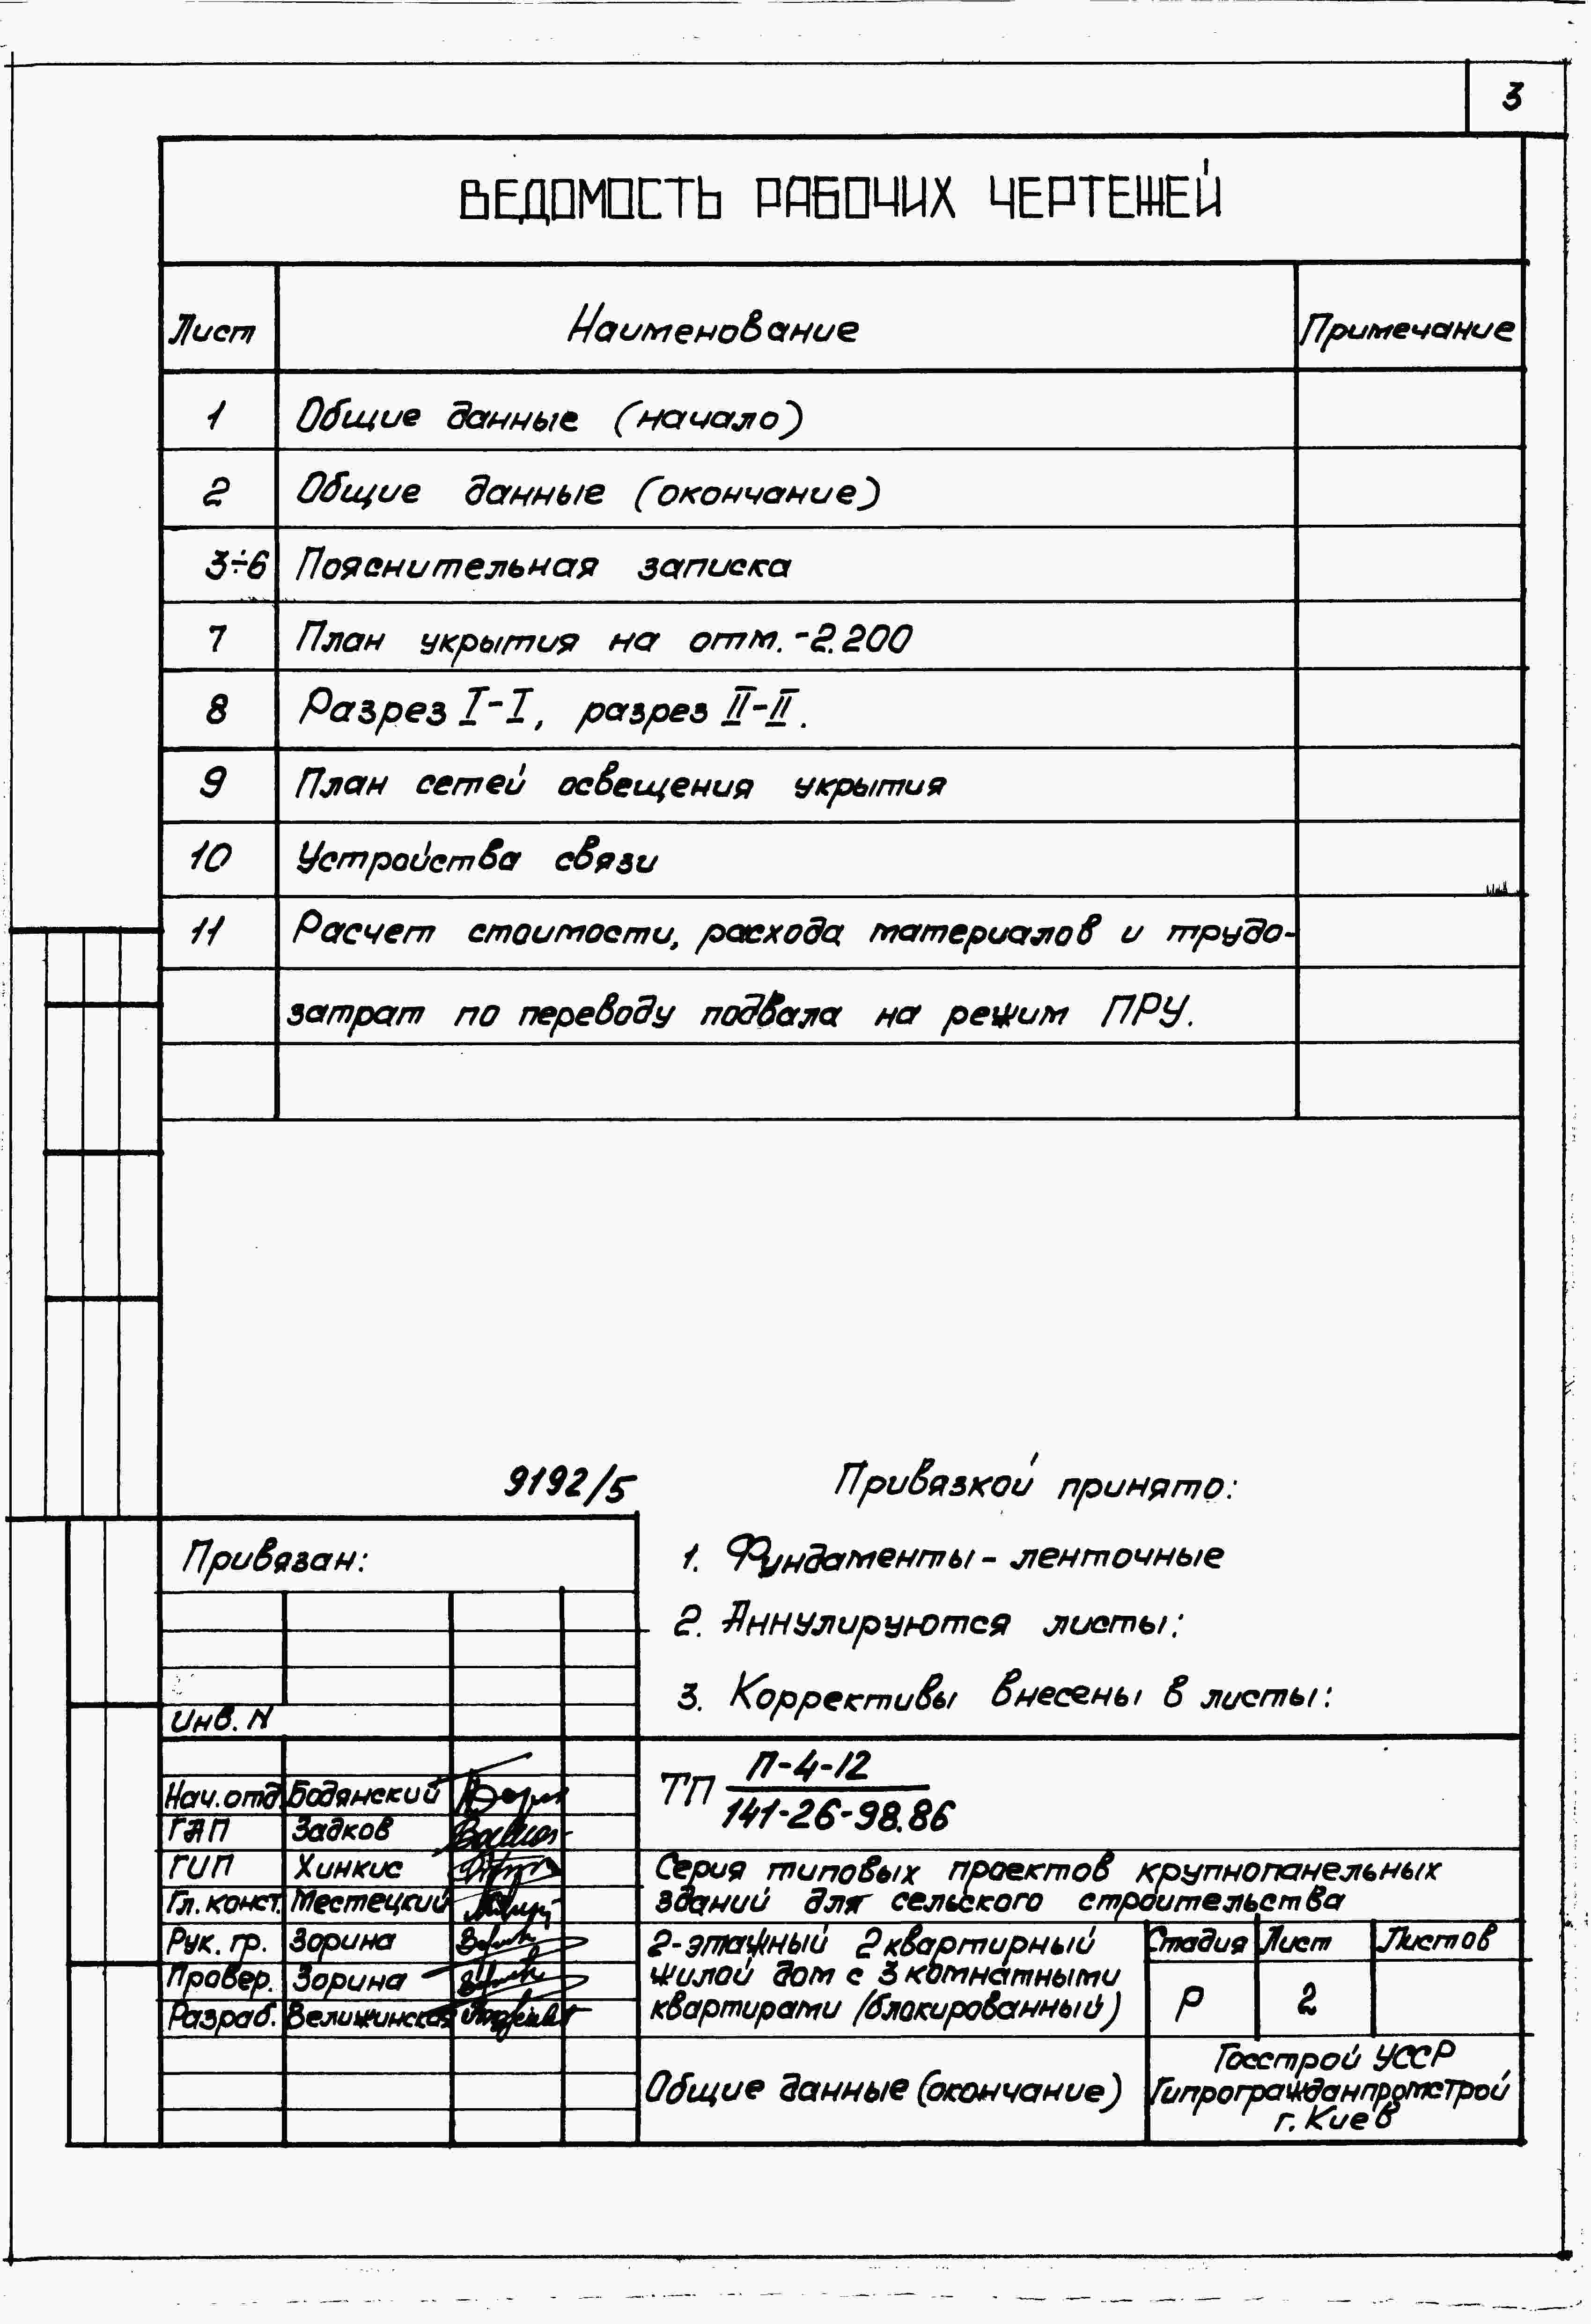 3
ВЕДОМОСТЬ РАБОЧИХ ЧЕРТЕЖЕЙ
Лист Наименование Примечание
1 Общие данные (начало)
2 Общие данные (окончание)
3÷6 Пояснительная записка
7 План укрытия на отм. -2.200
8 Разрез I-I, разрез II-II.
9 План сетей освещения укрытия
10 Устройства связи
11 Расчет стоимости, расхода материалов и трудо-
затрат по переводу подвала на режим ПРУ.
9192/5
Привязкой принято:
Привязан:
1. Фундаменты - ленточные
2. Аннулируются листы:
3. Коррективы внесены в листы:
Инв. N
ТП П-4-12
141-26-98.86
Нач. отд. Бодянский
ГАП Задков
ГИП Хинкис
Гл. конст. Местецкий
Рук. гр. Зорина
Провер. Зорина
Разраб. Велижинская
Серия типовых проектов крупнопанельных
зданий для сельского строительства
2-этажный 2 квартирный
жилой дом с 3 комнатными
квартирами (блокированный)
Стадия Лист Листов
Р 2
Общие данные (окончание)
Госстрой УССР
Гипрогражданпромстрой
г. Киев